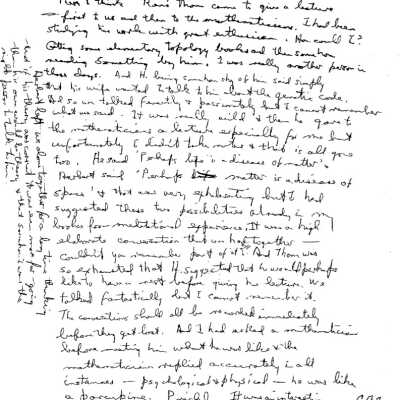 Then I think René Thom came to give a lecture
- first to us and then to the mathematicians. I had been
studying his work with great enthusiasm. How could I?
some elementary topology books and then somehow
reading something by him. I was really another person in
those days. And H. being somehow shy of him said simply
that his wife wanted to talk to him about the genetic code.
And so we talked frantically & passionately but I cannot remember
what was said. It was really wild & then he gave to
the mathematicians a lecture especially for me but
unfortunately I didn't take notes & that is all gone
too. He said "Perhaps life is a disease of matter" &
said "Perhaps matter is a disease of
space" & that was very exhilarating but I had
suggested these two possibilities already in my
books from meditational experience. It was a high
elaborate conversation that we had together —
couldn't you remember part of it? And Thom was
so exhausted that H. suggested that he would perhaps
like to have a rest before giving his lecture. We
talked fantastically but I cannot remember it.
The conversations should all be recorded immediately
before they get lost. And I had asked a mathematician
before meeting him what he was like & the
mathematician replied accurately in all
instances — psychological & physical — he was like
a porcupine. Prickly. It was interesti
left us alone together for a long time thinking
that if his theory was correct was now going